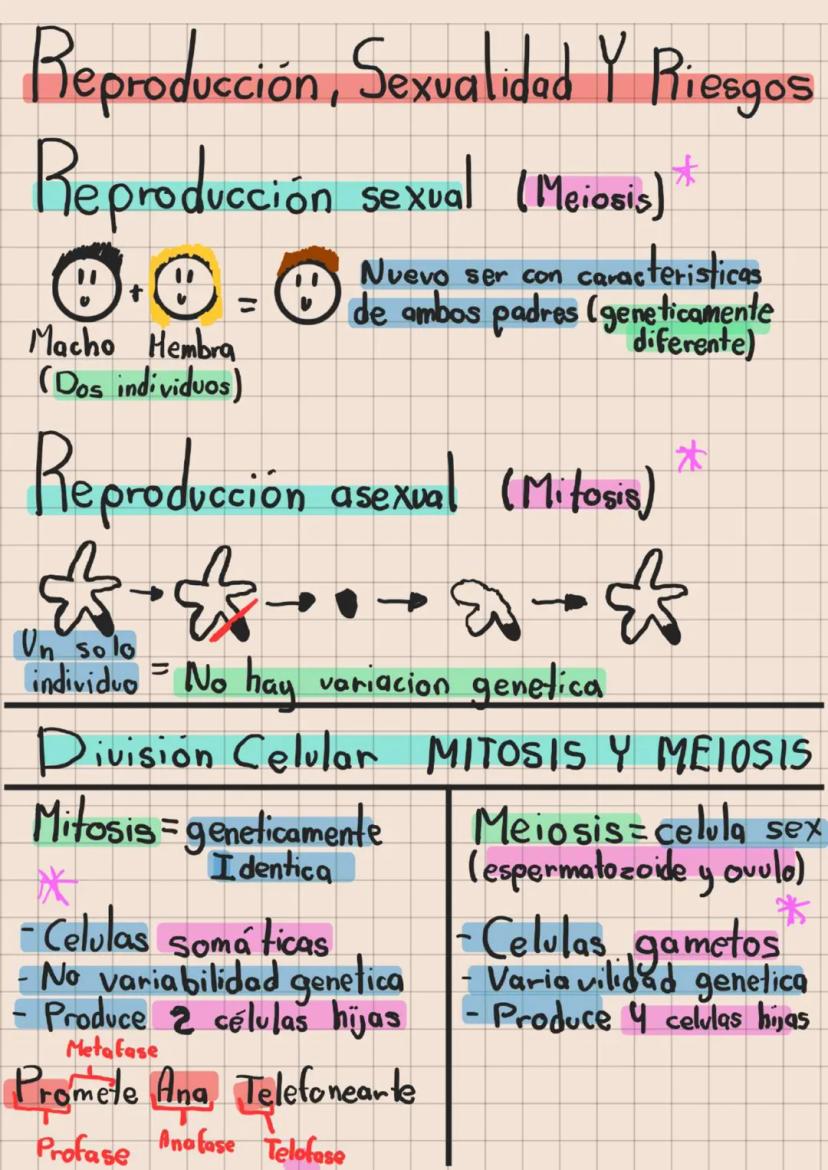 Reproducción, Sexualidad Y Riesgos
Reproducción sexual (Meiosis)*
+ =
Nuevo ser con caracteristicas
de ambos padres (geneticamente
diferente)
Macho Hembra
(Dos individuos)
Reproducción asexual (Mitosis)*
Un solo
individuo = No hay variacion genetica
División Celular MITOSIS Y MEIOSIS
Mitosis = geneticamente
Identica
*
- Celulas somáticas
- No variabilidad genetica
- Produce 2 células hijas
Metafase
Promete Ana Telefonearte
Profase Anafase Telofase
Meiosis = celula sex
(espermatozoide y ovulo)
*
- Celulas gametos
- Variavilidad genetica
- Produce 4 celulas hijas